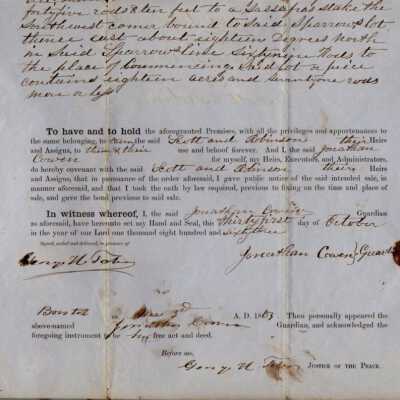 five rods & ten feet to a Sassafras stake the
Southwest corner bound to Said Sparrow's lot
thence east about eighteen Degrees north
in Said Sparrow's line Sixty nine Rods to
the place of Commencing Said lot or piece
contains eighteen acres and Seventy one rods
more or less
To have and to hold the aforegranted Premises, with all the privileges and appurtenances to
the same belonging, to them the said Scott and Robinson their Heirs
and Assigns, to them & their use and behoof forever. And I, the said Jonathan
Cowen for myself, my Heirs, Executors, and Administrators,
do hereby covenant with the said Scott and Robinson, their Heirs
and Assigns, that in pursuance of the order aforesaid, I gave public notice of the said intended sale, in
manner aforesaid, and that I took the oath by law required, previous to fixing on the time and place of
sale, and gave the bond previous to said sale.
In witness whereof, I, the said Jonathan Cowen Guardian
as aforesaid, have hereunto set my Hand and Seal, this thirty first day of October
in the year of our Lord one thousand eight hundred and Sixty three
Signed, sealed and delivered, in presence of
Jonathan Cowen, Guard
A. D. 1863 Then personally appeared the
above-named Jonathan Cowen Guardian, and acknowledged the
foregoing instrument to be his free act and deed.
Before me,
JUSTICE OF THE PEACE.